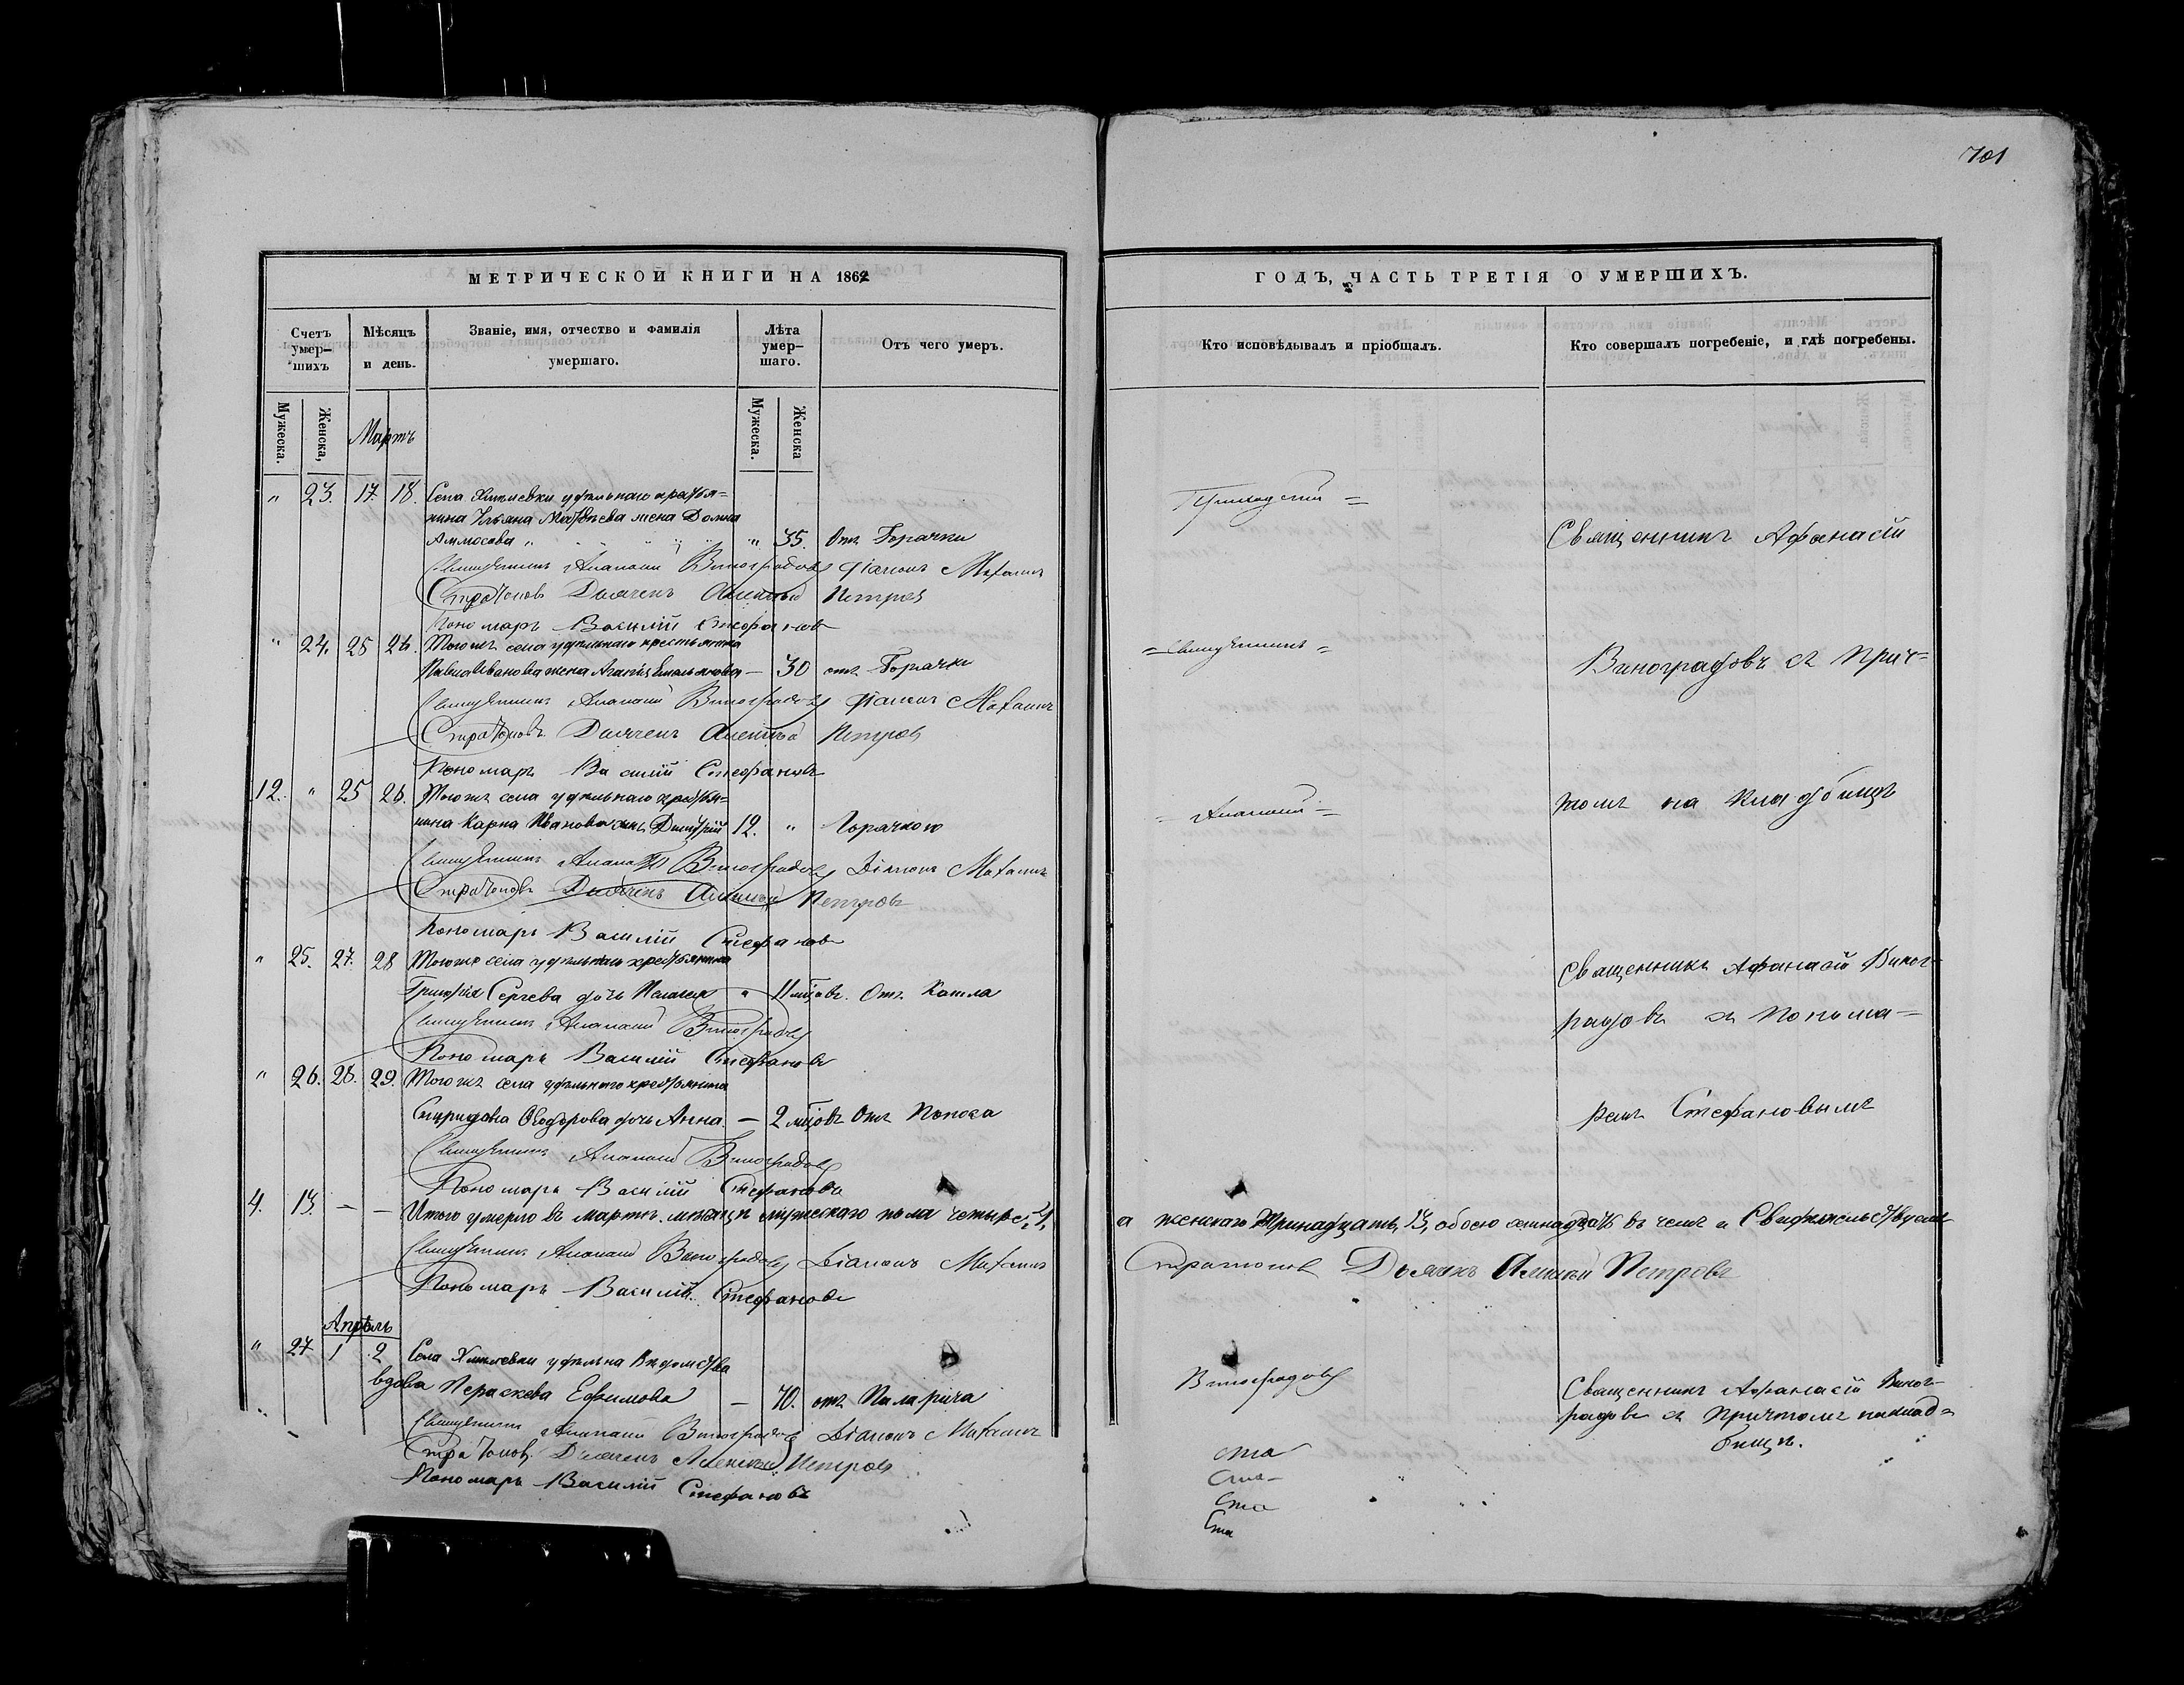 701
МЕТРИЧЕСКОЙ КНИГИ НА 1862
ГОДЪ, ЧАСТЬ ТРЕТІЯ О УМЕРШИХЪ.
Счетъ умер-шихъ
Мѣсяцъ и день.
Званіе, имя, отчество и фамилія умершаго.
Лѣта умер-шаго.
Отъ чего умеръ.
Кто исповѣдывалъ и пріобщалъ.
Кто совершалъ погребеніе, и гдѣ погребены.
Мужеска.
Женска,
Мартъ
Мужеска.
Женска
" 23. 17. 18. Села удѣльнаго крестья=
нина Ульяна Матвѣева жена Домна
Аммосова " " 35. Отъ Горячки
Священникъ Афанасій
Священникъ Аѳанасій Виноградовъ Діаконъ
Стратоновъ Дьячекъ Алексѣй Петровъ
Пономарь Василій Стефановъ
" 24. 25 26. Тогожъ села удѣльнаго крестьянина
Павла Иванова жена Агафія Емельянова — 30 отъ Горячки
= Священникъ =
Виноградовъ съ прич=
Священникъ Аѳанасій Виноградовъ Діаконъ
Стратоновъ Дьячекъ Алексѣй Петровъ
Пономарь Василій Стефановъ
12. " 25 26. Тогожъ села удѣльнаго крестья=
нина Карпа Иванова сынъ Димитрій 12. " Горячкою
= Аѳанасій =
томъ на кладбищѣ
Священникъ Аѳанасій Виноградовъ Діаконъ
Стратоновъ Дьячекъ Алексѣй Петровъ
Пономарь Василій Стефановъ
" 25. 27. 28 Тогоже села удѣльнаго крестьянина
Сергѣева дочь Пелагея " 11 мцовъ. Отъ Кашля
Священникъ Афанасій Виног-
Священникъ Аѳанасій Виноградовъ
радовъ съ Понома=
Пономарь Василій Стефановъ
" 26. 28. 29. Тогожъ села удѣльнаго крестьянина
Спиридона Ѳеодорова дочь Анна. — 2 мцовъ Отъ Поноса
ремъ Стефановымъ
Священникъ Аѳанасій Виноградовъ
Пономарь Василій Стефановъ
4. 13. — — Итого умерло въ мартѣ мѣсяцѣ мужескаго пола четыре, 4,
а женскаго тринадцать, 13, обоего семнадцать въ чемъ и Свидѣтельствуемъ
Священникъ Аѳанасій Виноградовъ Діаконъ
Стратоновъ Дьячекъ Алексѣй Петровъ
Пономарь Василій Стефановъ
Апрѣль
" 27 1 2 Села удѣльна Вѣдомства
вдова Параскева Ефимова — 70. отъ Паралича
Виноградовъ
Священникъ Афанасій Виног-
радовъ съ Причтомъ на клад=
бищѣ.
Священникъ Аѳанасій Виноградовъ Діаконъ
Стратоновъ Дьячекъ Алексѣй Петровъ
Пономарь Василій Стефановъ